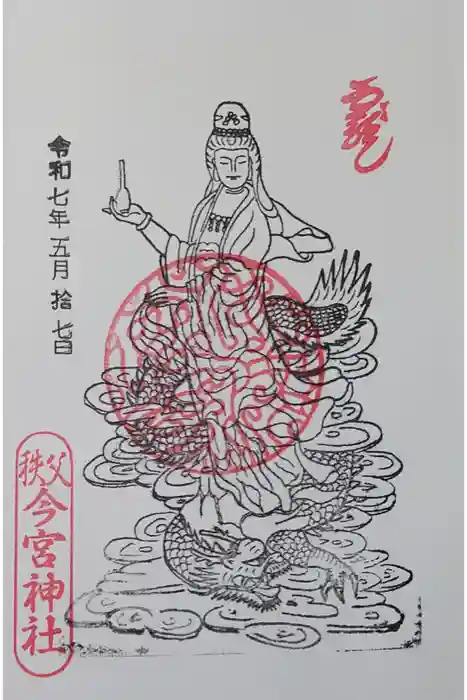 令和七年五月拾七日
秩父
今宮神社